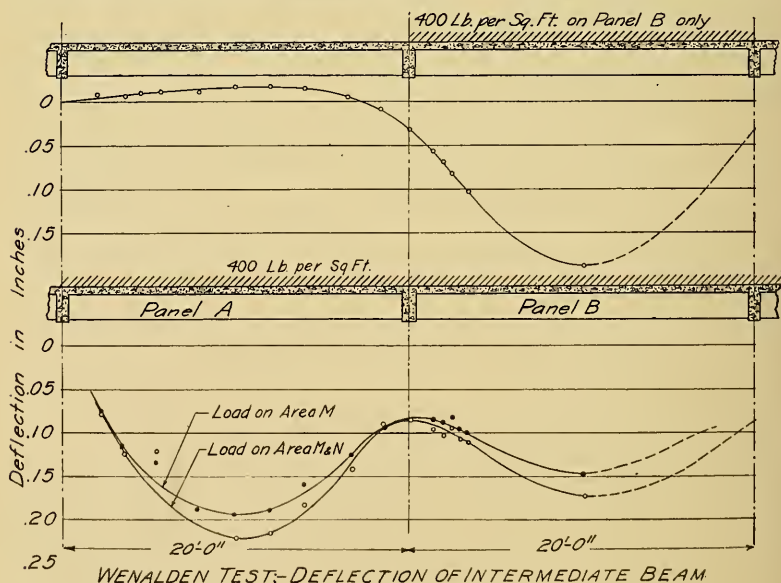 400 Lb. per Sq. Ft. on Panel B only
0
.05
.10
.15
400 Lb. per Sq Ft.
Panel A
Panel B
Deflection in Inches
0
.05
.10
.15
.20
.25
Load on Area M
Load on Area M&N
20'-0"
20'-0"
WENALDEN TEST;-DEFLECTION OF INTERMEDIATE BEAM.